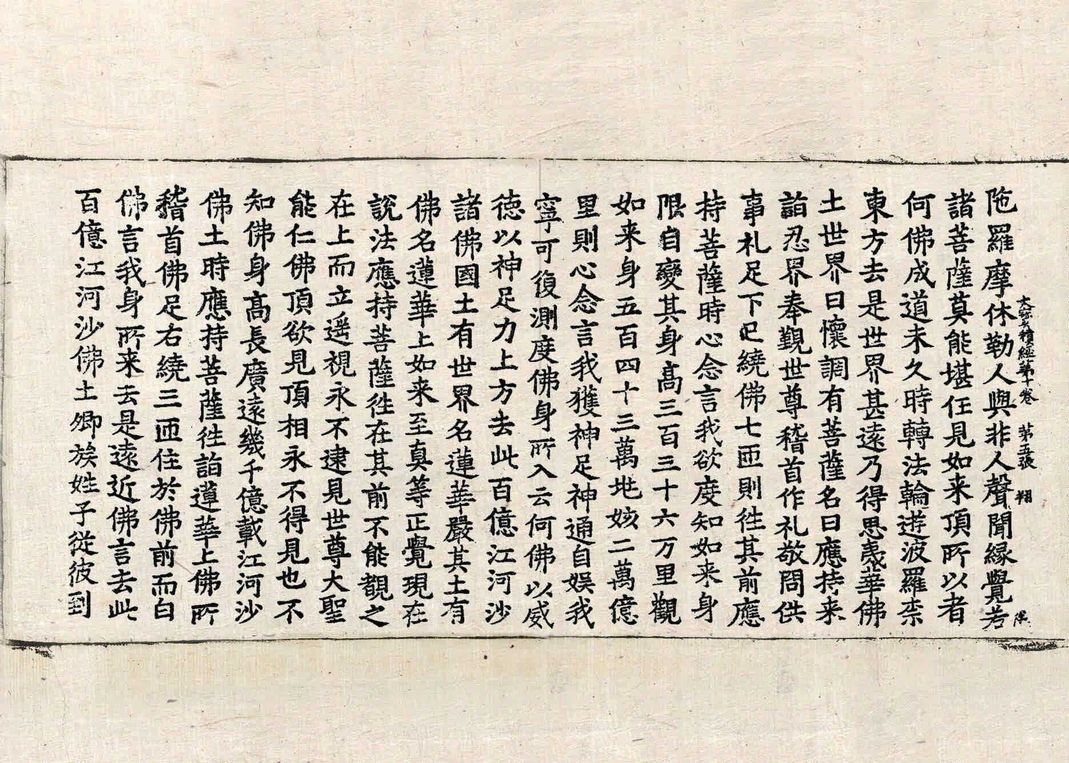 陁羅摩休勒人與非人聲聞緣覺若
大寶積經第十卷 第五張 翔
諸菩薩莫能堪任見如来頂所以者
何佛成道未久時轉法輪遊波羅柰
東方去是世界甚遠乃得思義華佛
土世界曰懷調有菩薩名曰應持来
詣忍界奉觀世尊稽首作礼敬問供
事礼足下已繞佛七匝則往其前應
持菩薩時心念言我欲度知如来身
限自變其身高三百三十六万里觀
如来身五百四十三萬地姟二萬億
里則心念言我獲神足神通自娛我
寧可復測度佛身所入云何佛以威
德以神足力上方去此百億江河沙
諸佛國土有世界名蓮華嚴其土有
佛名蓮華上如来至真等正覺現在
說法應持菩薩往在其前不能覩之
在上而立遥視永不逮見世尊大聖
能仁佛頂欲見頂相永不得見也不
知佛身高長廣遠幾千億載江河沙
佛土時應持菩薩往詣蓮華上佛所
稽首佛足右繞三匝住於佛前而白
佛言我身所来去是遠近佛言去此
百億江河沙佛土卿族姓子從彼到